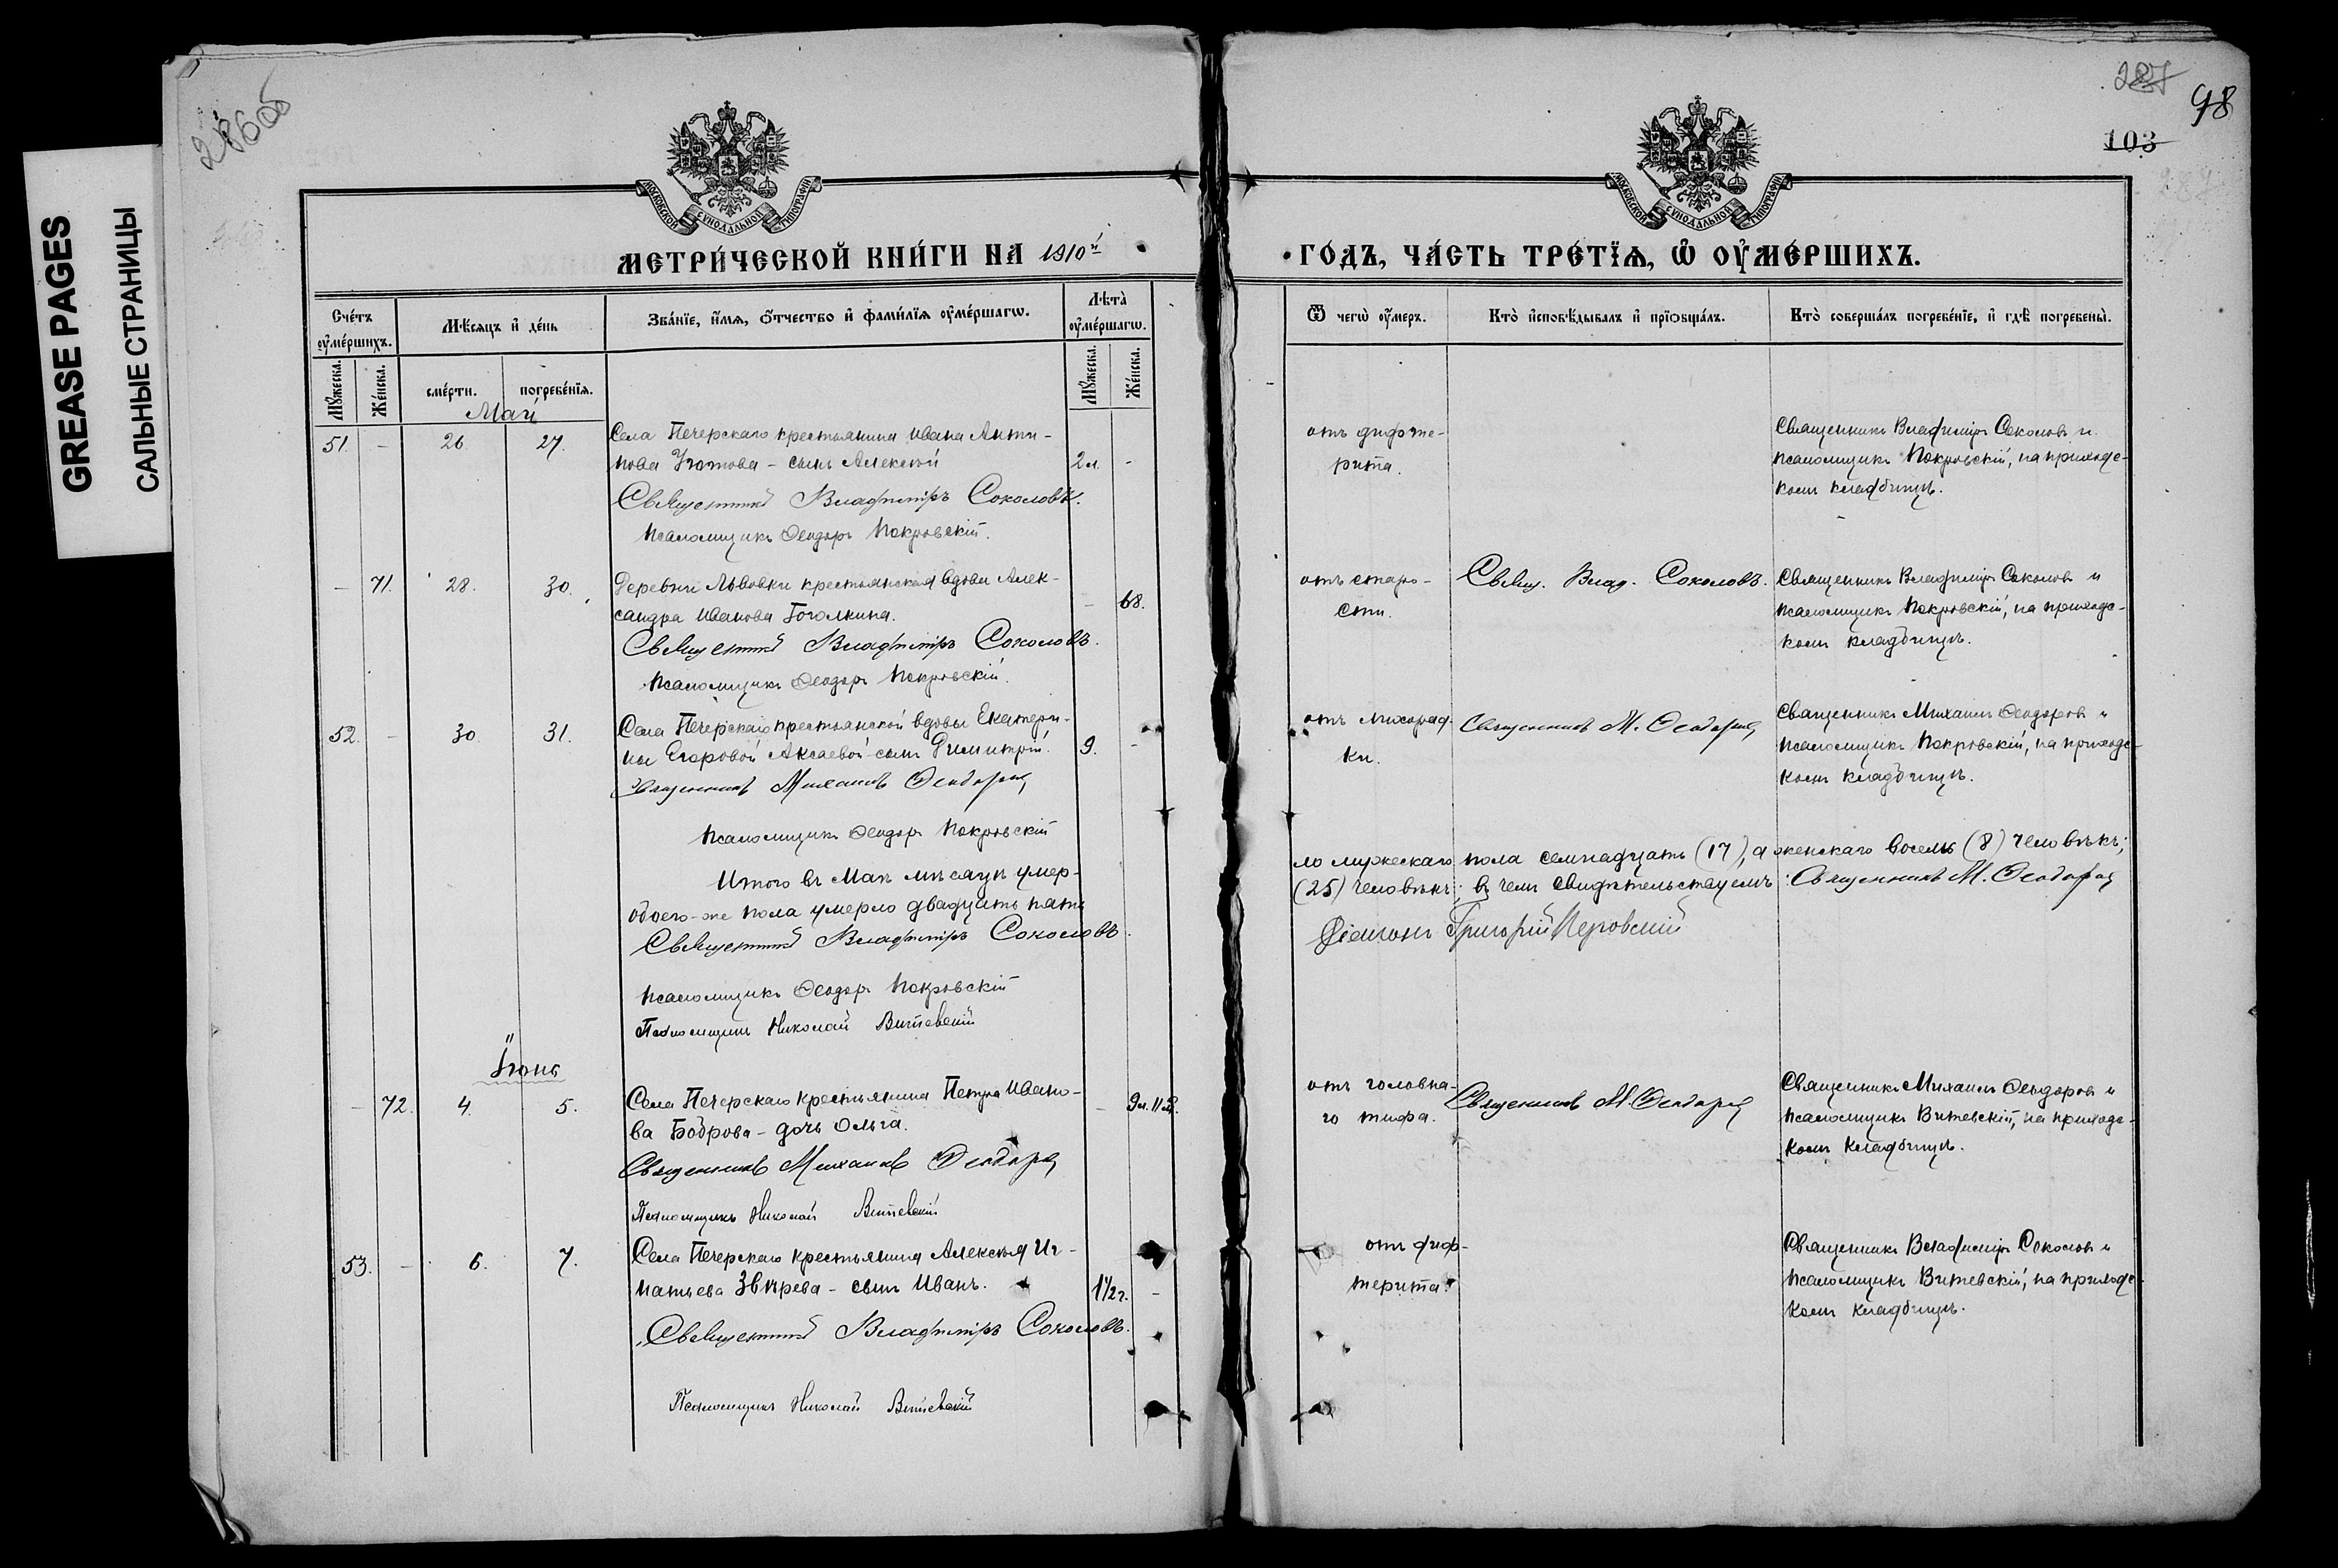 GREASE PAGES
САЛЬНЫЕ СТРАНИЦЫ
98
103
МОСКОВСКОЙ СѴНОДАЛЬНОЙ ТИПОГРАФІИ
МОСКОВСКОЙ СѴНОДАЛЬНОЙ ТИПОГРАФІИ
МЕТРИ́ЧЕСКОЙ КНИ́ГИ НА 1910й
ГО́ДЪ, ЧА́СТЬ ТРЕ́ТЇѦ, Ѽ ОУ҆МЕ́РШИХЪ.
Сче́тъ оу҆ме́ршихъ.
Мѣ́сяцъ и҆ де́нь
Зва́нїе, и҆́мѧ, ѻ҆́тчество и҆ фами́лїѧ оу҆ме́ршагѡ.
Лѣта̀ оу҆ме́ршагѡ.
Ѿ чегѡ̀ оу҆́меръ.
Кто̀ и҆сповѣ́дывалъ и҆ прїѡбща́лъ.
Кто̀ соверша́лъ погребе́нїе, и҆ гдѣ̀ погребены̀.
Мꙋ́жеска.
Же́нска.
сме́рти.
погребе́нїѧ.
Мꙋ́жеска.
Же́нска.
Май
51. - 26. 27.
Села Печерскаго крестьянина Ивана Анти-
пова Уютова - сынъ Алексѣй 2м. -
Священникъ Владиміръ Соколовъ.
Псаломщикъ Ѳеодоръ Покровскій.
отъ дифте-
рита.
Священникъ Владиміръ Соколовъ и
псаломщикъ Покровскій, на приходс-
комъ кладбищѣ.
- 71. 28. 30.
Деревни Львовки крестьянская вдова Алек-
сандра Иванова Гоголкина. - 68.
Священникъ Владиміръ Соколовъ.
Псаломщикъ Ѳеодоръ Покровскій.
отъ старо-
сти.
Свящ. Влад. Соколовъ.
Священникъ Владиміръ Соколовъ и
псаломщикъ Покровскій, на приходс-
комъ кладбищѣ.
52. - 30. 31.
Села Печерскаго крестьянской вдовы Екатери-
ны Егоровой Аксаевой-сынъ Димитрій. 9. -
Священникъ Михаилъ Ѳеодоровъ
Псаломщикъ Ѳеодоръ Покровскій
отъ лихорад-
ки.
Священникъ М. Ѳеодоровъ
Священникъ Михаилъ Ѳеодоровъ и
псаломщикъ Покровскій, на приходс-
комъ кладбищѣ.
Итого въ Маѣ мѣсяцѣ умер-
ло мужескаго пола семнадцать (17), а женскаго восемь (8) человѣкъ;
обоего-же пола умерло двадцать пять
(25) человѣкъ; въ чемъ свидѣтельствуемъ: Священникъ М. Ѳеодоровъ
Священникъ Владиміръ Соколовъ.
Діаконъ Григорій Перовскій
Псаломщикъ Ѳеодоръ Покровскій
Псаломщикъ Николай Витевскій
Іюнь
- 72. 4. 5.
Села Печерскаго крестьянина Петра Ивано-
ва Боброва - дочь Ольга. -
Священникъ Михаилъ Ѳеодоровъ
Псаломщикъ Николай Витевскій
отъ головна-
го тифа.
Священникъ М. Ѳеодоровъ
Священникъ Михаилъ Ѳеодоровъ и
псаломщикъ Витевскій, на приходс-
комъ кладбищѣ.
53. - 6. 7.
Села Печерскаго крестьянина Алексѣя Иг-
натьева Звѣрева - сынъ Иванъ. 1½г. -
Священникъ Владиміръ Соколовъ.
Псаломщикъ Николай Витевскій
отъ диф-
терита.
Священникъ Владиміръ Соколовъ и
псаломщикъ Витевскій, на приходс-
комъ кладбищѣ.